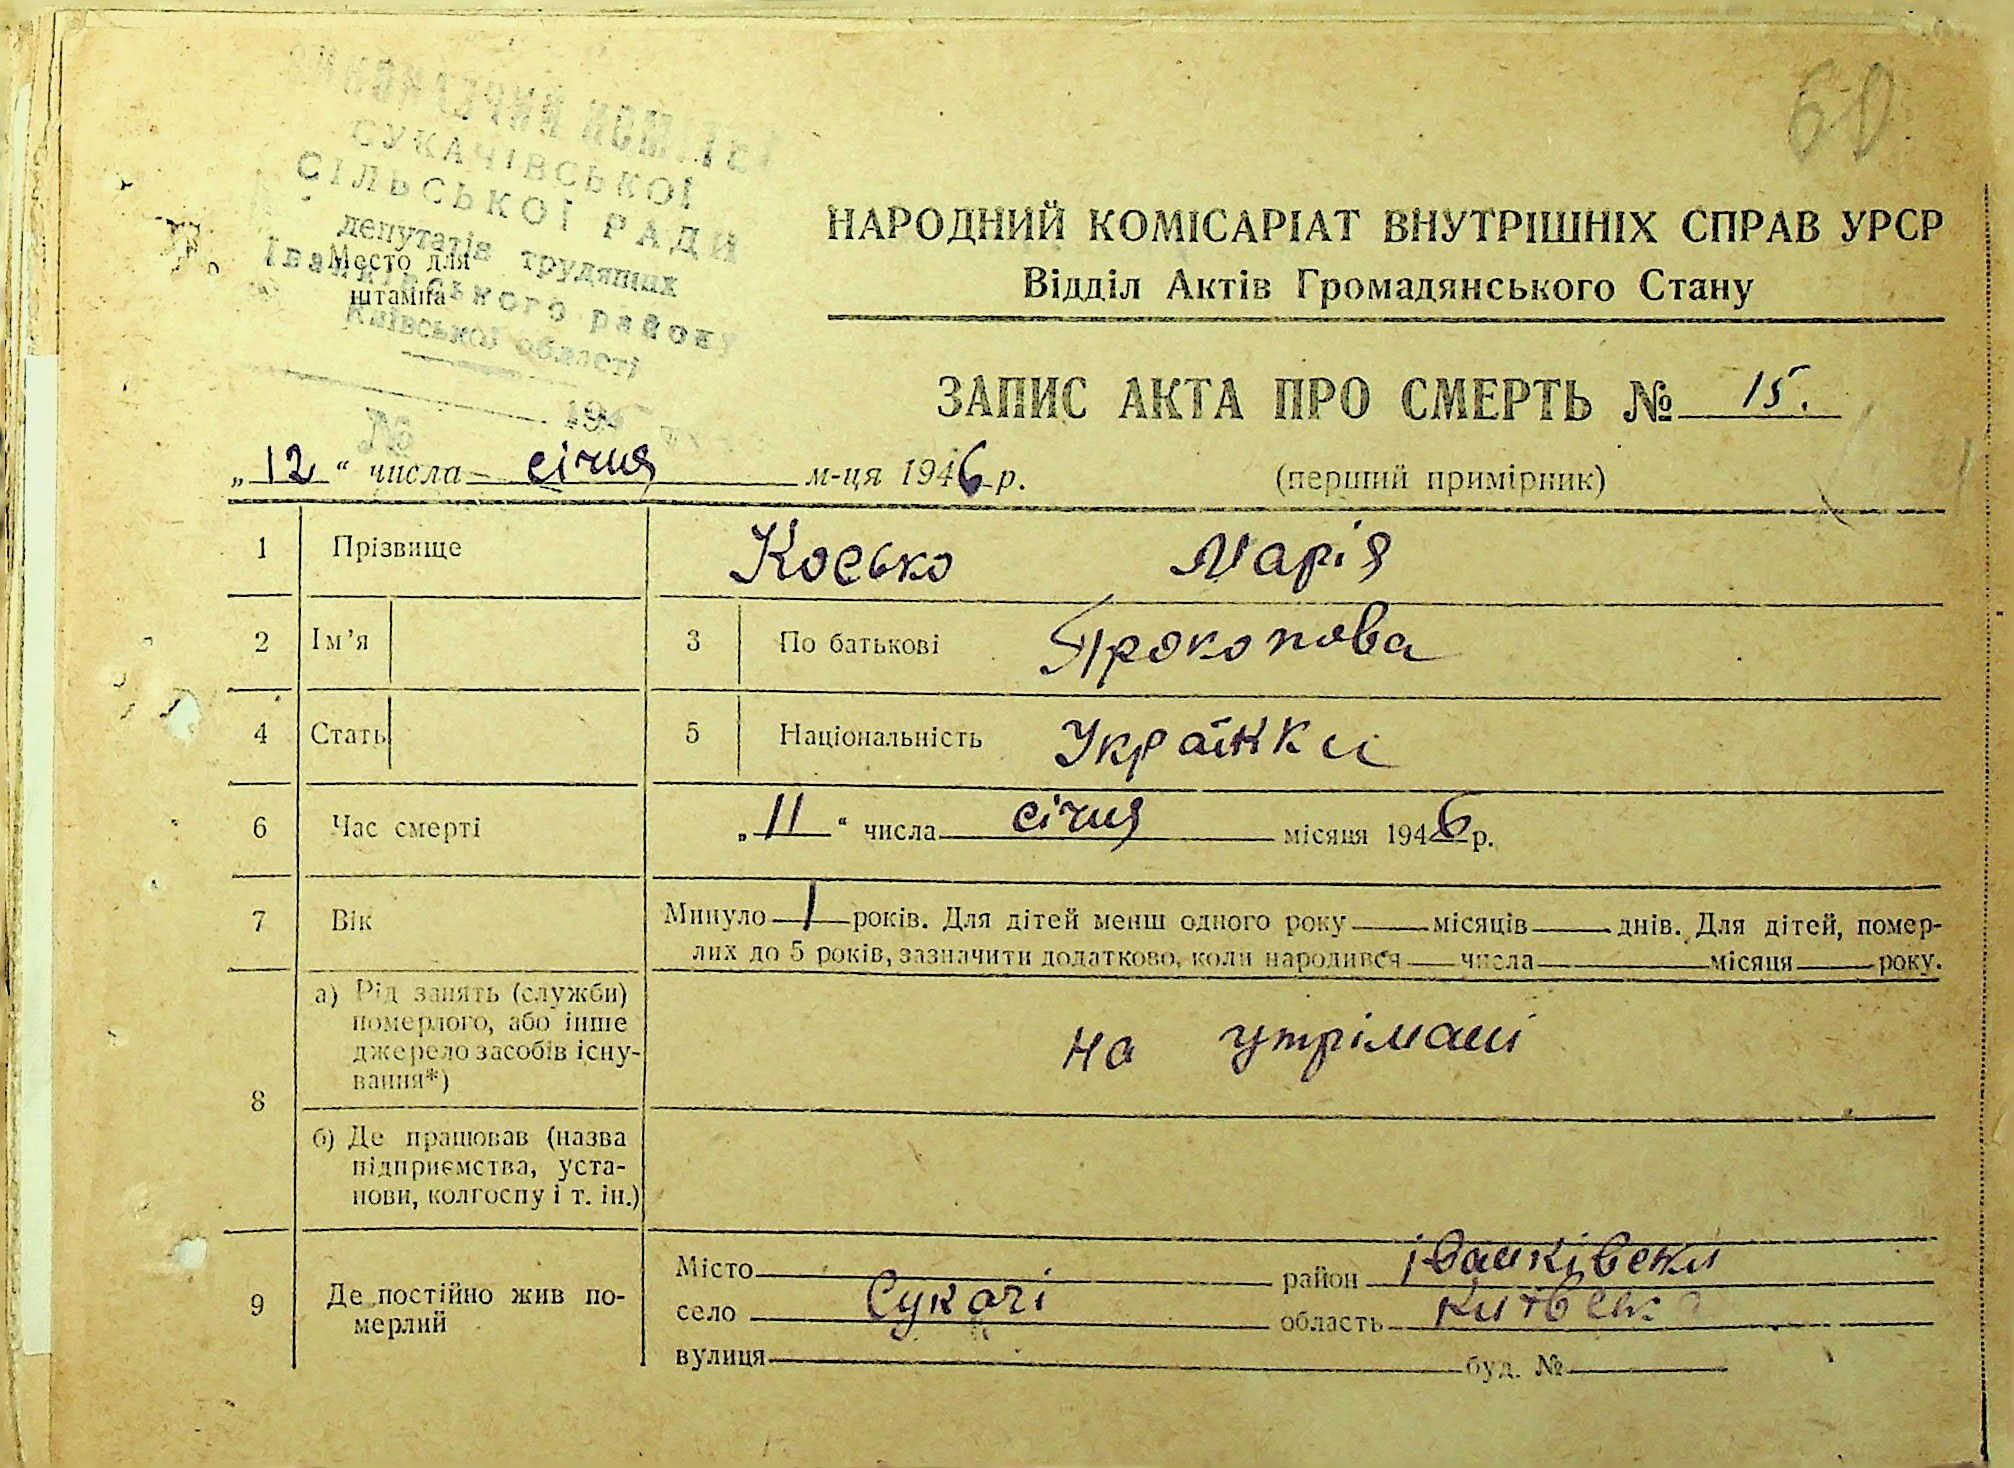 60
ВИКОНАВЧИЙ КОМІТЕТ
СУКАЧІВСЬКОЇ
СІЛЬСЬКОЇ РАДИ
депутатів трудящих
Іванківського району
Київської області
№ 194
Место для
штампа
НАРОДНИЙ КОМІСАРІАТ ВНУТРІШНІХ СПРАВ УРСР
Відділ Актів Громадянського Стану
ЗАПИС АКТА ПРО СМЕРТЬ № 15.
„12“ числа січня м-ця 1946 р.
(перший примірник)
1 Прізвище Косько Марія
2 Ім’я 3 По батькові Прокопова
4 Стать 5 Національність Українки
6 Час смерті „11“ числа січня місяця 1946 р.
7 Вік Минуло 1 років. Для дітей менш одного року місяців днів. Для дітей, помер-
лих до 5 років, зазначити додатково, коли народився числа місяця року.
8 а) Рід занять (служби)
померлого, або інше
джерело засобів існу-
вання*)
на утрімані
б) Де працював (назва
підприємства, уста-
нови, колгоспу і т. ін.)
9 Де постійно жив по-
мерлий
Місто район іванківськи
село Сукачі область
вулиця буд. №